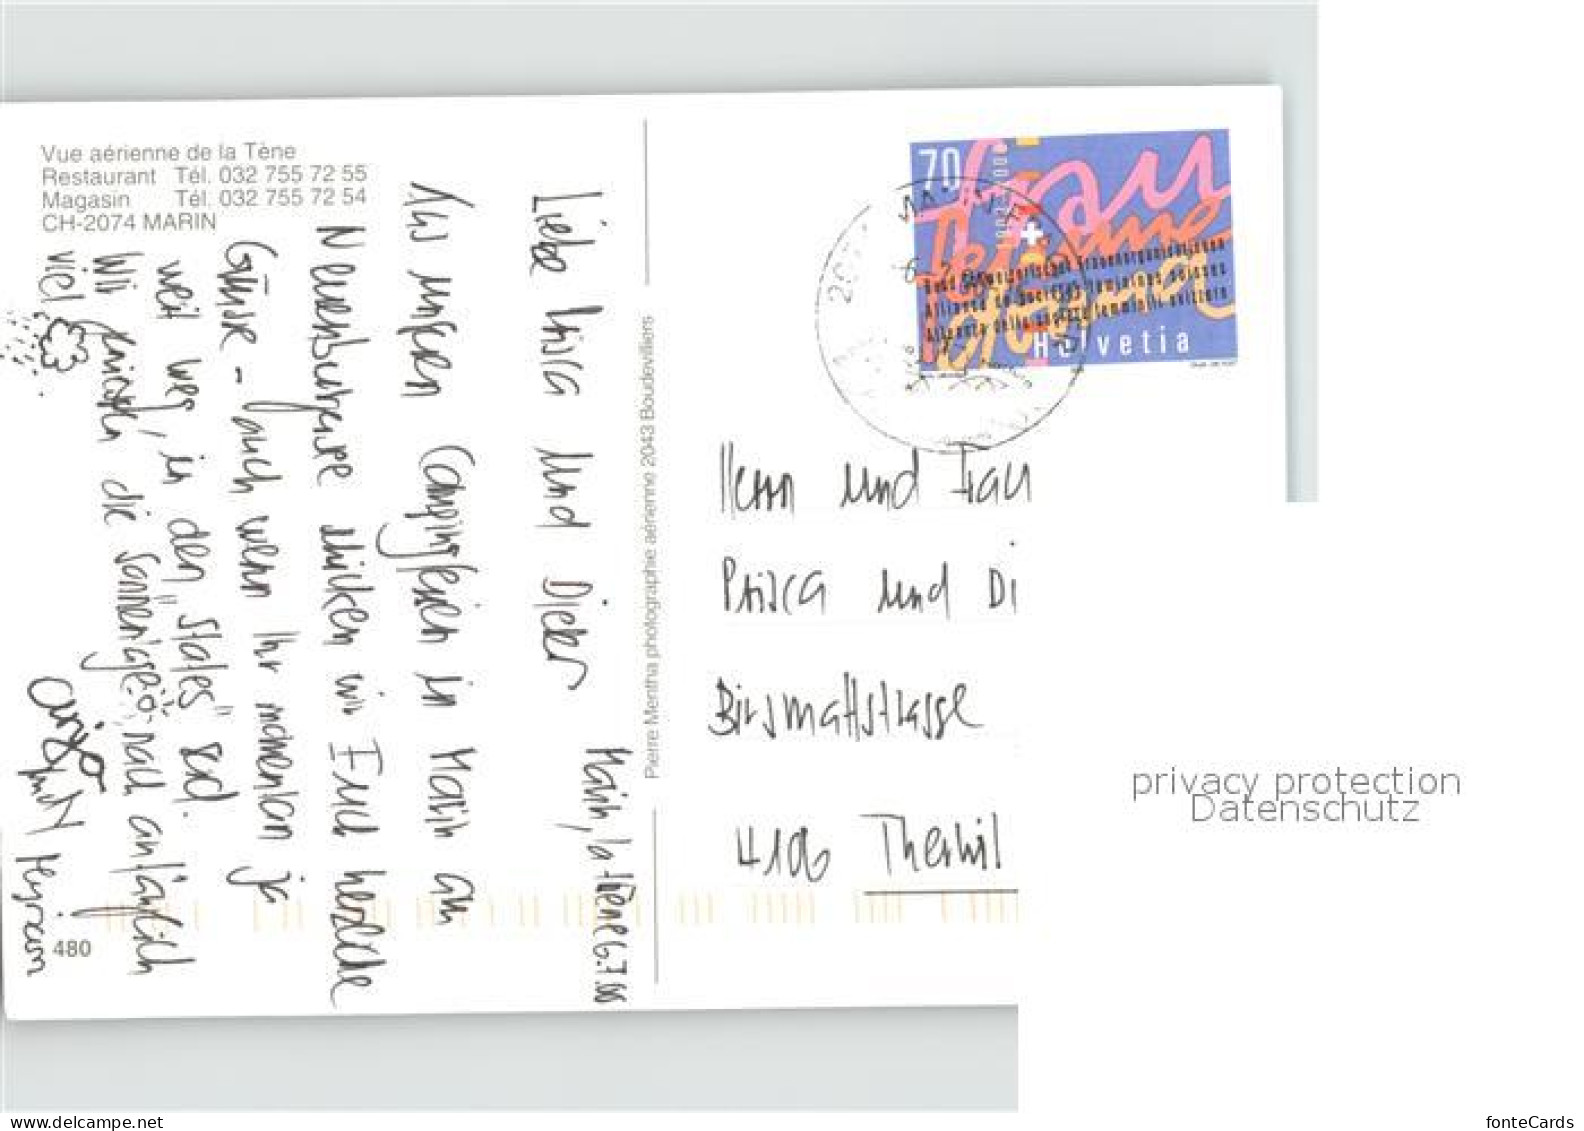 Vue aérienne de la Tène
Restaurant Tél. 032 755 72 55
Magasin Tél. 032 755 72 54
CH-2074 MARIN
Marin, la Tène 6.7.00
Liebe Prisca und Dieter
Aus unseren Campingferien in Marin am
Neuenburgersee schicken wir Euch herzliche
Grüsse - auch wenn Ihr momentan ja
weit weg, in den "States" seid.
Wir genießen die sonnige nach anfänglich
viel
und Myriam
480
Pierre Mentha photographie aérienne 2043 Boudevilliers
70
Helvetia
Bund Schweizerischer Frauenorganisationen
Alliance de Sociétés féminines suisses
Alleanza delle società femminili svizzere
Herrn und Frau
Prisca und Di
Birsmattstrasse
4106 Therwil
privacy protection
Datenschutz
www.delcampe.net
fonteCards